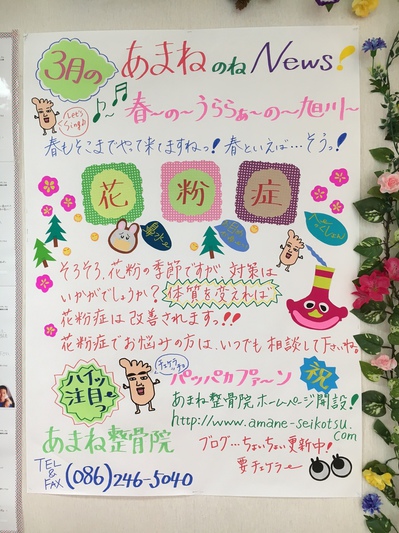 3月の あまね のね News!
Let's Sing♪
春〜の〜うららぁ〜の〜旭川〜
春もそこまでやって来てますねっ! 春といえば…そうっ!
花 粉 症
鼻水〜
へぇ〜くしょん
そろそろ、花粉の季節ですが 対策は
いかがでしょうか? 体質を変えれば
花粉症は改善されますっ!!
花粉症でお悩みの方は、いつでも相談して下さいね。
ハイッ注目っ
チェケラッチョ
パッパカプァ〜ン 祝
あまね整骨院ホームページ開設!
http://www.amane-seikotsu.com
あまね整骨院 ブログ…ちょいちょい更新中!
TEL & FAX (086)246-5040 要チェケラー